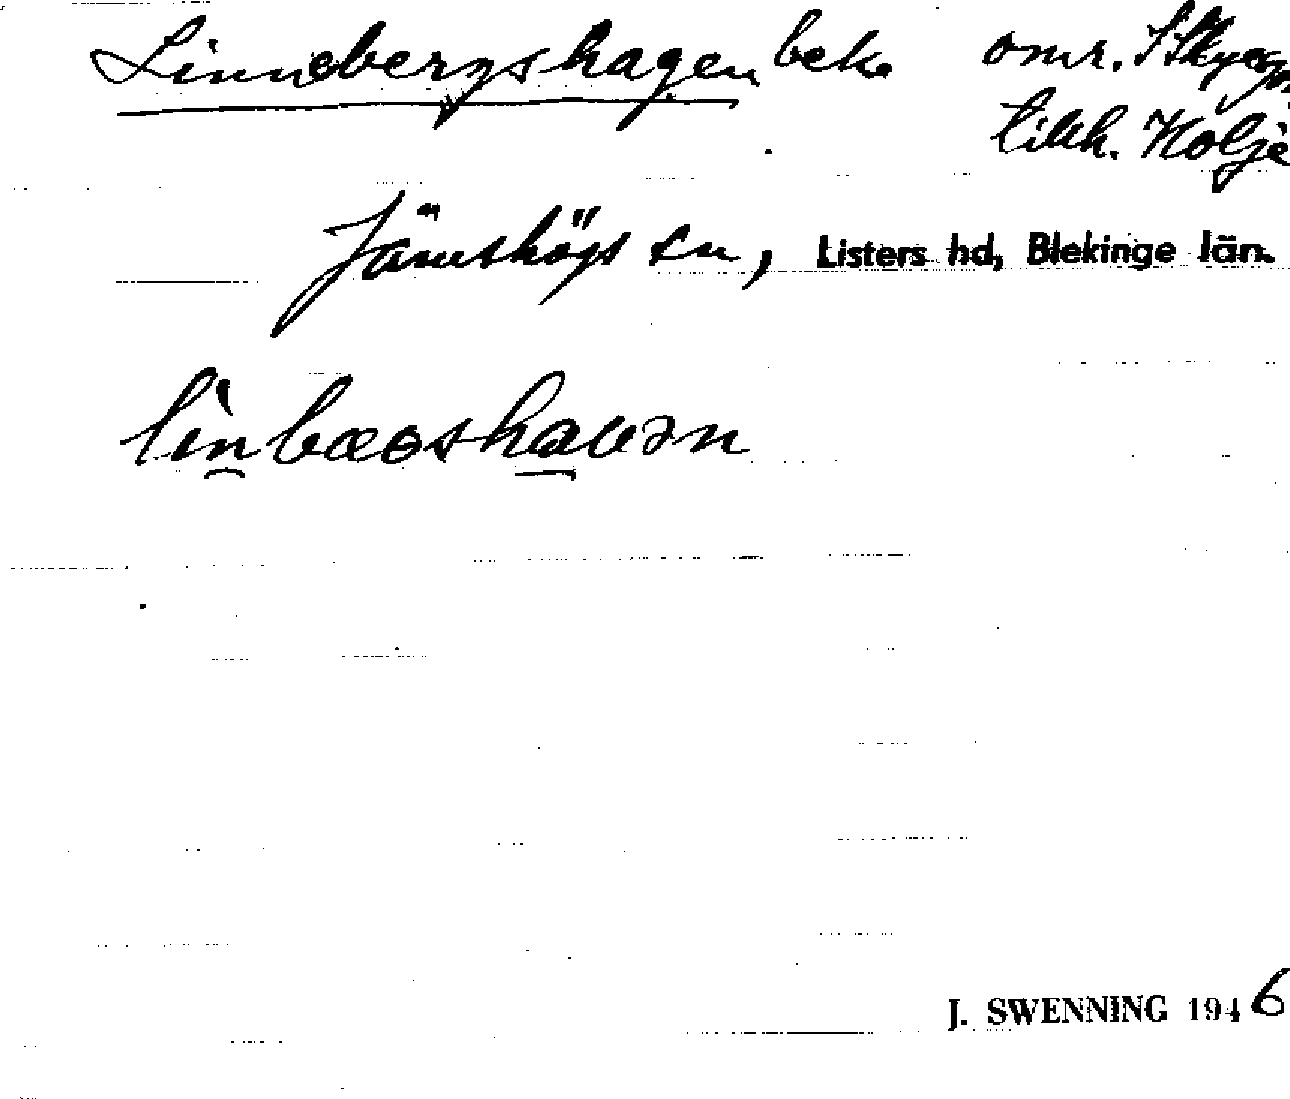 Linnebergshagen bek. omr.
tillh. Holje
Jämshögs sn, Listers hd, Blekinge län.
linbæoshauən
J. SWENNING 1946